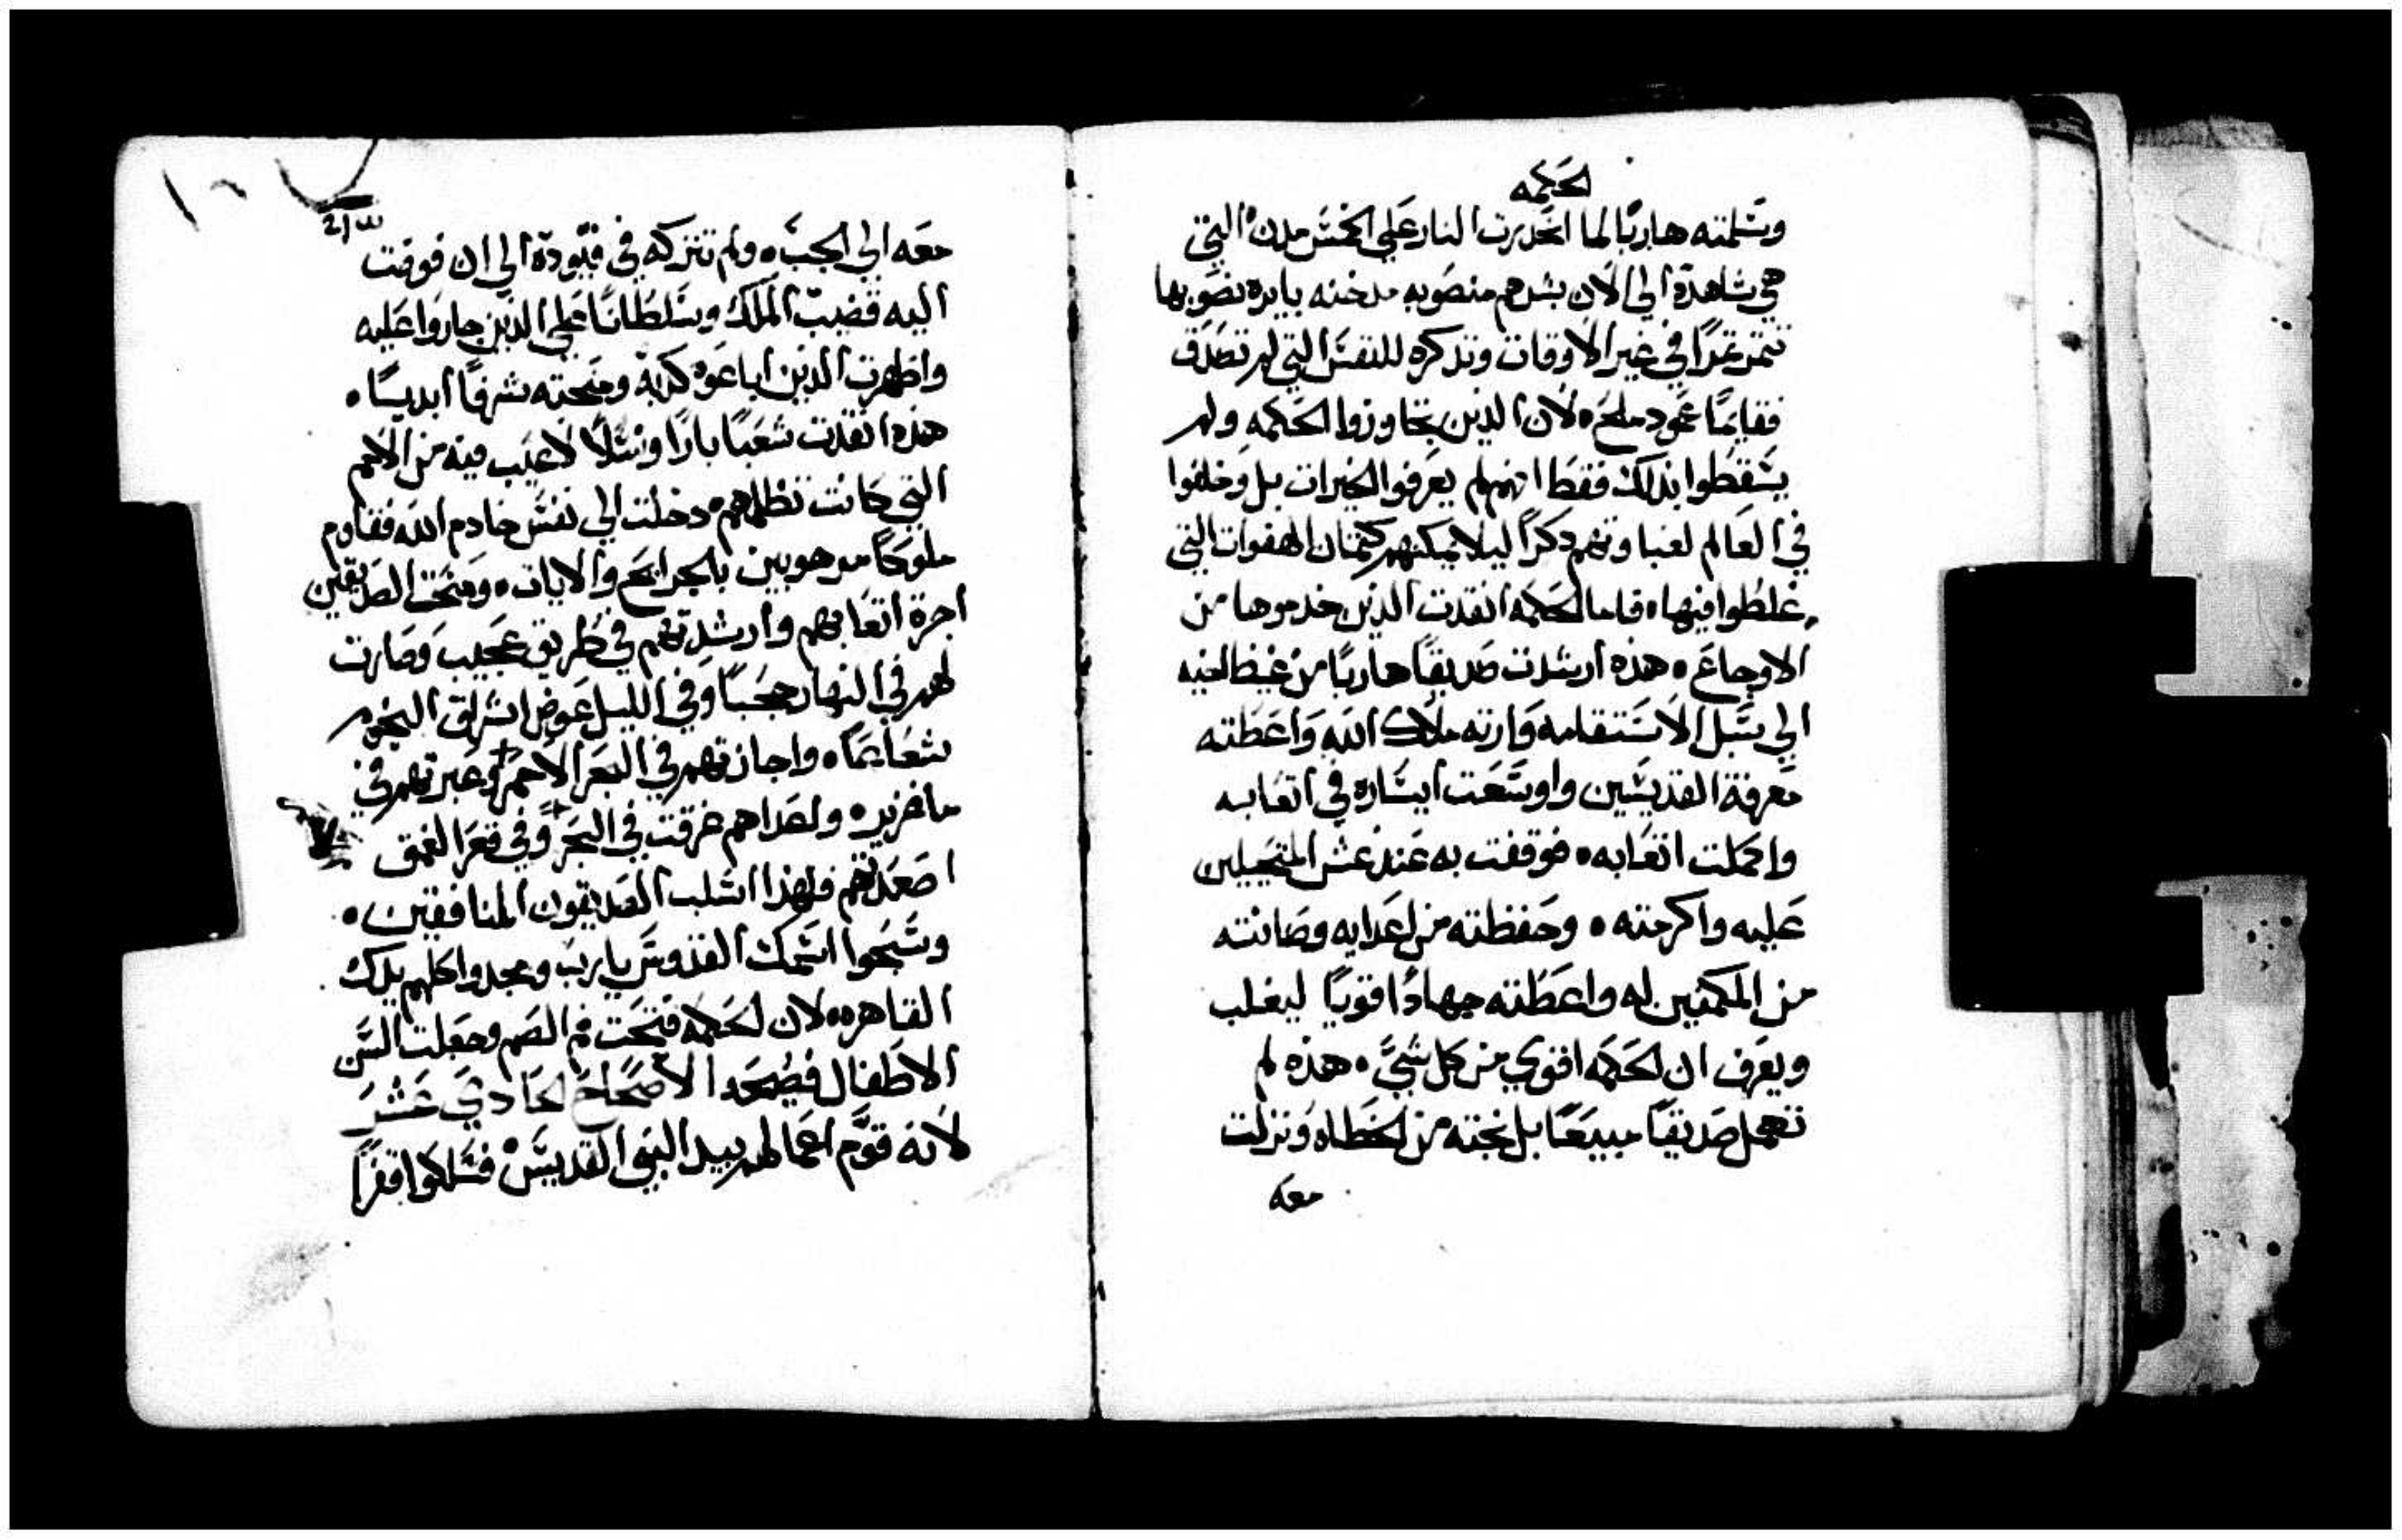 الحكمه
وسلمته هاربًا لما انحدرت النار علي الخمس مدن التي
هي شاهدة الي الان بشرهم منصوبه مدخنه بايره نصوبها
تتمر تمرًا في غير الاوقات وتذكره للنفس التي لم تصدق
فقايمًا عمود ملح ۰ لان الذين تجاوزوا الحكمه ولم
يسقطوا بذلك فقط انهم لم يعرفوا الخيرات بل وخلفوا
في العالم لغباوتهم ذكرًا ليلا يمكنهم كتمان الهفوات التي
غلطوا فيها ۰ فاما الحكمه انقدت الذين خدموها من
الاوجاع ۰ هذه ارشدت صديقًا هاربًا من غيظ اخيه
الي سبل الاستقامه وارته ملاك الله واعطته
معرفة القديسين واوسعت ايساره في اتعابه
واكملت اتعابه ۰ فوقفت به عند غش المتحيلين
عليه واكرمته ۰ وحفظته من اعدايه وصانته
من المكمنين له واعطته جهادًا قويًا ليغلب
ويعرف ان الحكمه اقوي من كل شيً ۰ هذه لم
تهمل صديقًا مبيعًا بل نجته من الخطاه ونزلت
معه
معه الي الجب ۰ ولم تتركه في قيوده الي ان فوقت
اليه قضيب الملك وسلطانًا علي الذين جاروا عليه
واظهرت الذين اباعوه كدبة ومنحته شرفًا ابديًا ۰
هذه انقذت شعبًا بارًا ونسلًا لا عيب فيه من الامم
التي كانت تظلمهم ۰ دخلت الي نفس خادم الله فقاوم
ملوكًا مرهوبين بالجرايح والايات ۰ ومنحت الصديقين
اجرة اتعابهم وارشدتهم في طريق عجيب وصارت
لهم في النهار حجبًا وفي الليل عوض اشراق النجوم
شعاعًا ۰ واجازتهم في البحر الاحمر وعبرتهم في
ما غزير ۰ ولعداهم غرقت في البحر وفي قعر الغمق
اصعدتهم فلهذا اسلب الصديقون المنافقين ۰
وسبحوا اسمك القدوس يا رب ومجدوا كلهم يدك
القاهره ۰ لان الحكمه فتحت فم الصم وجعلت السن
الاطفال فصيحه الاصحاح الحادي عشر
لانه قوّم اعمالهم بيد النبي القديس فسلكوا قفرًا